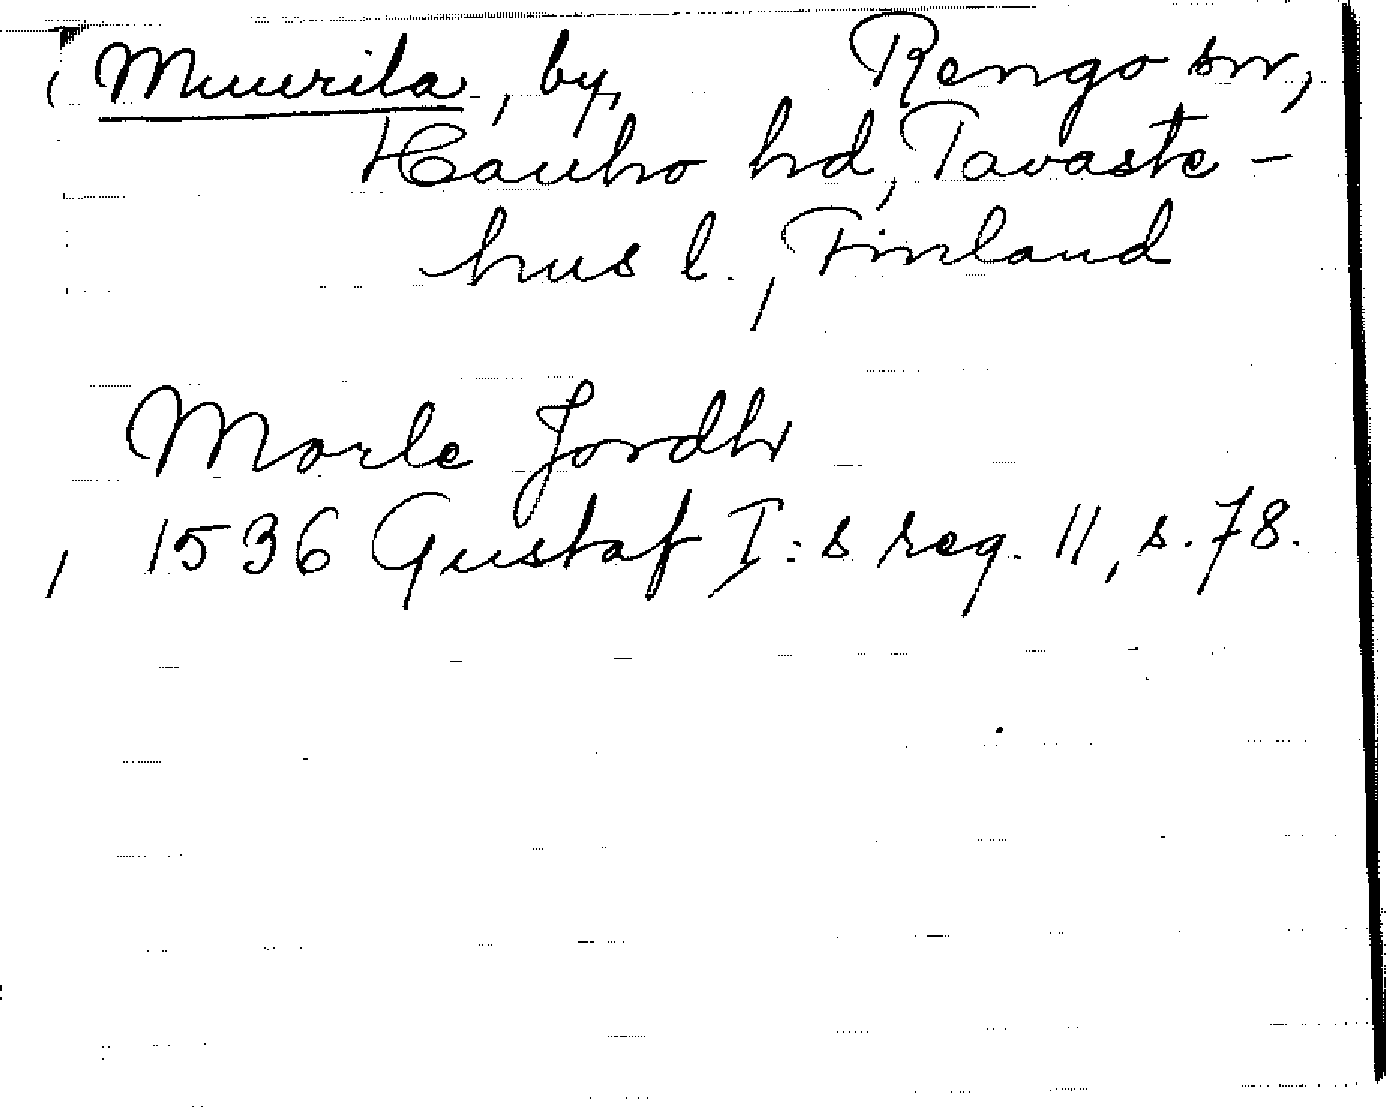 Muurila, by, Rengo sn,
Hauho hd, Tavaste-
hus l., Finland
Morle Jordh
1536 Gustaf I:s reg. 11, s. 78.